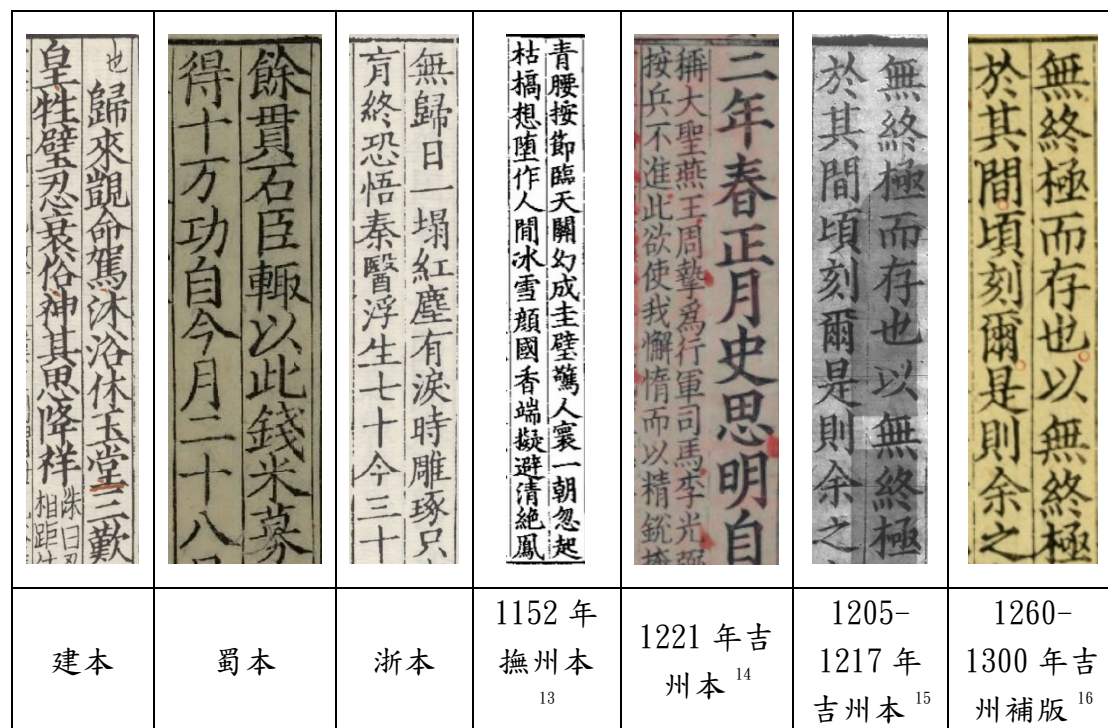 也歸來覬命駕沐浴休玉堂三歎
皇牲璧忍衰俗神其思降祥
相距
餘貫石臣輒以此錢米募
得十万功自今月二十八
無歸日一塌紅塵有淚時雕琢只
肓終恐悟秦醫浮生七十今三十
青腰按節臨天關幻成圭璧驚人寰一朝忽起
枯槁想墮作人間冰雪顏國香端擬避清絶鳳
二年春正月史思明自
稱大聖燕王周摯爲行軍司馬李光弼
按兵不進此欲使我懈惰而以精銳掩
無終極而存也以無終極
於其間頃刻爾是則余之
無終極而存也以無終極
於其間頃刻爾是則余之
建本
蜀本
浙本
1152 年
撫州本
13
1221 年吉
州本 14
1205-
1217 年
吉州本 15
1260-
1300 年吉
州補版 16